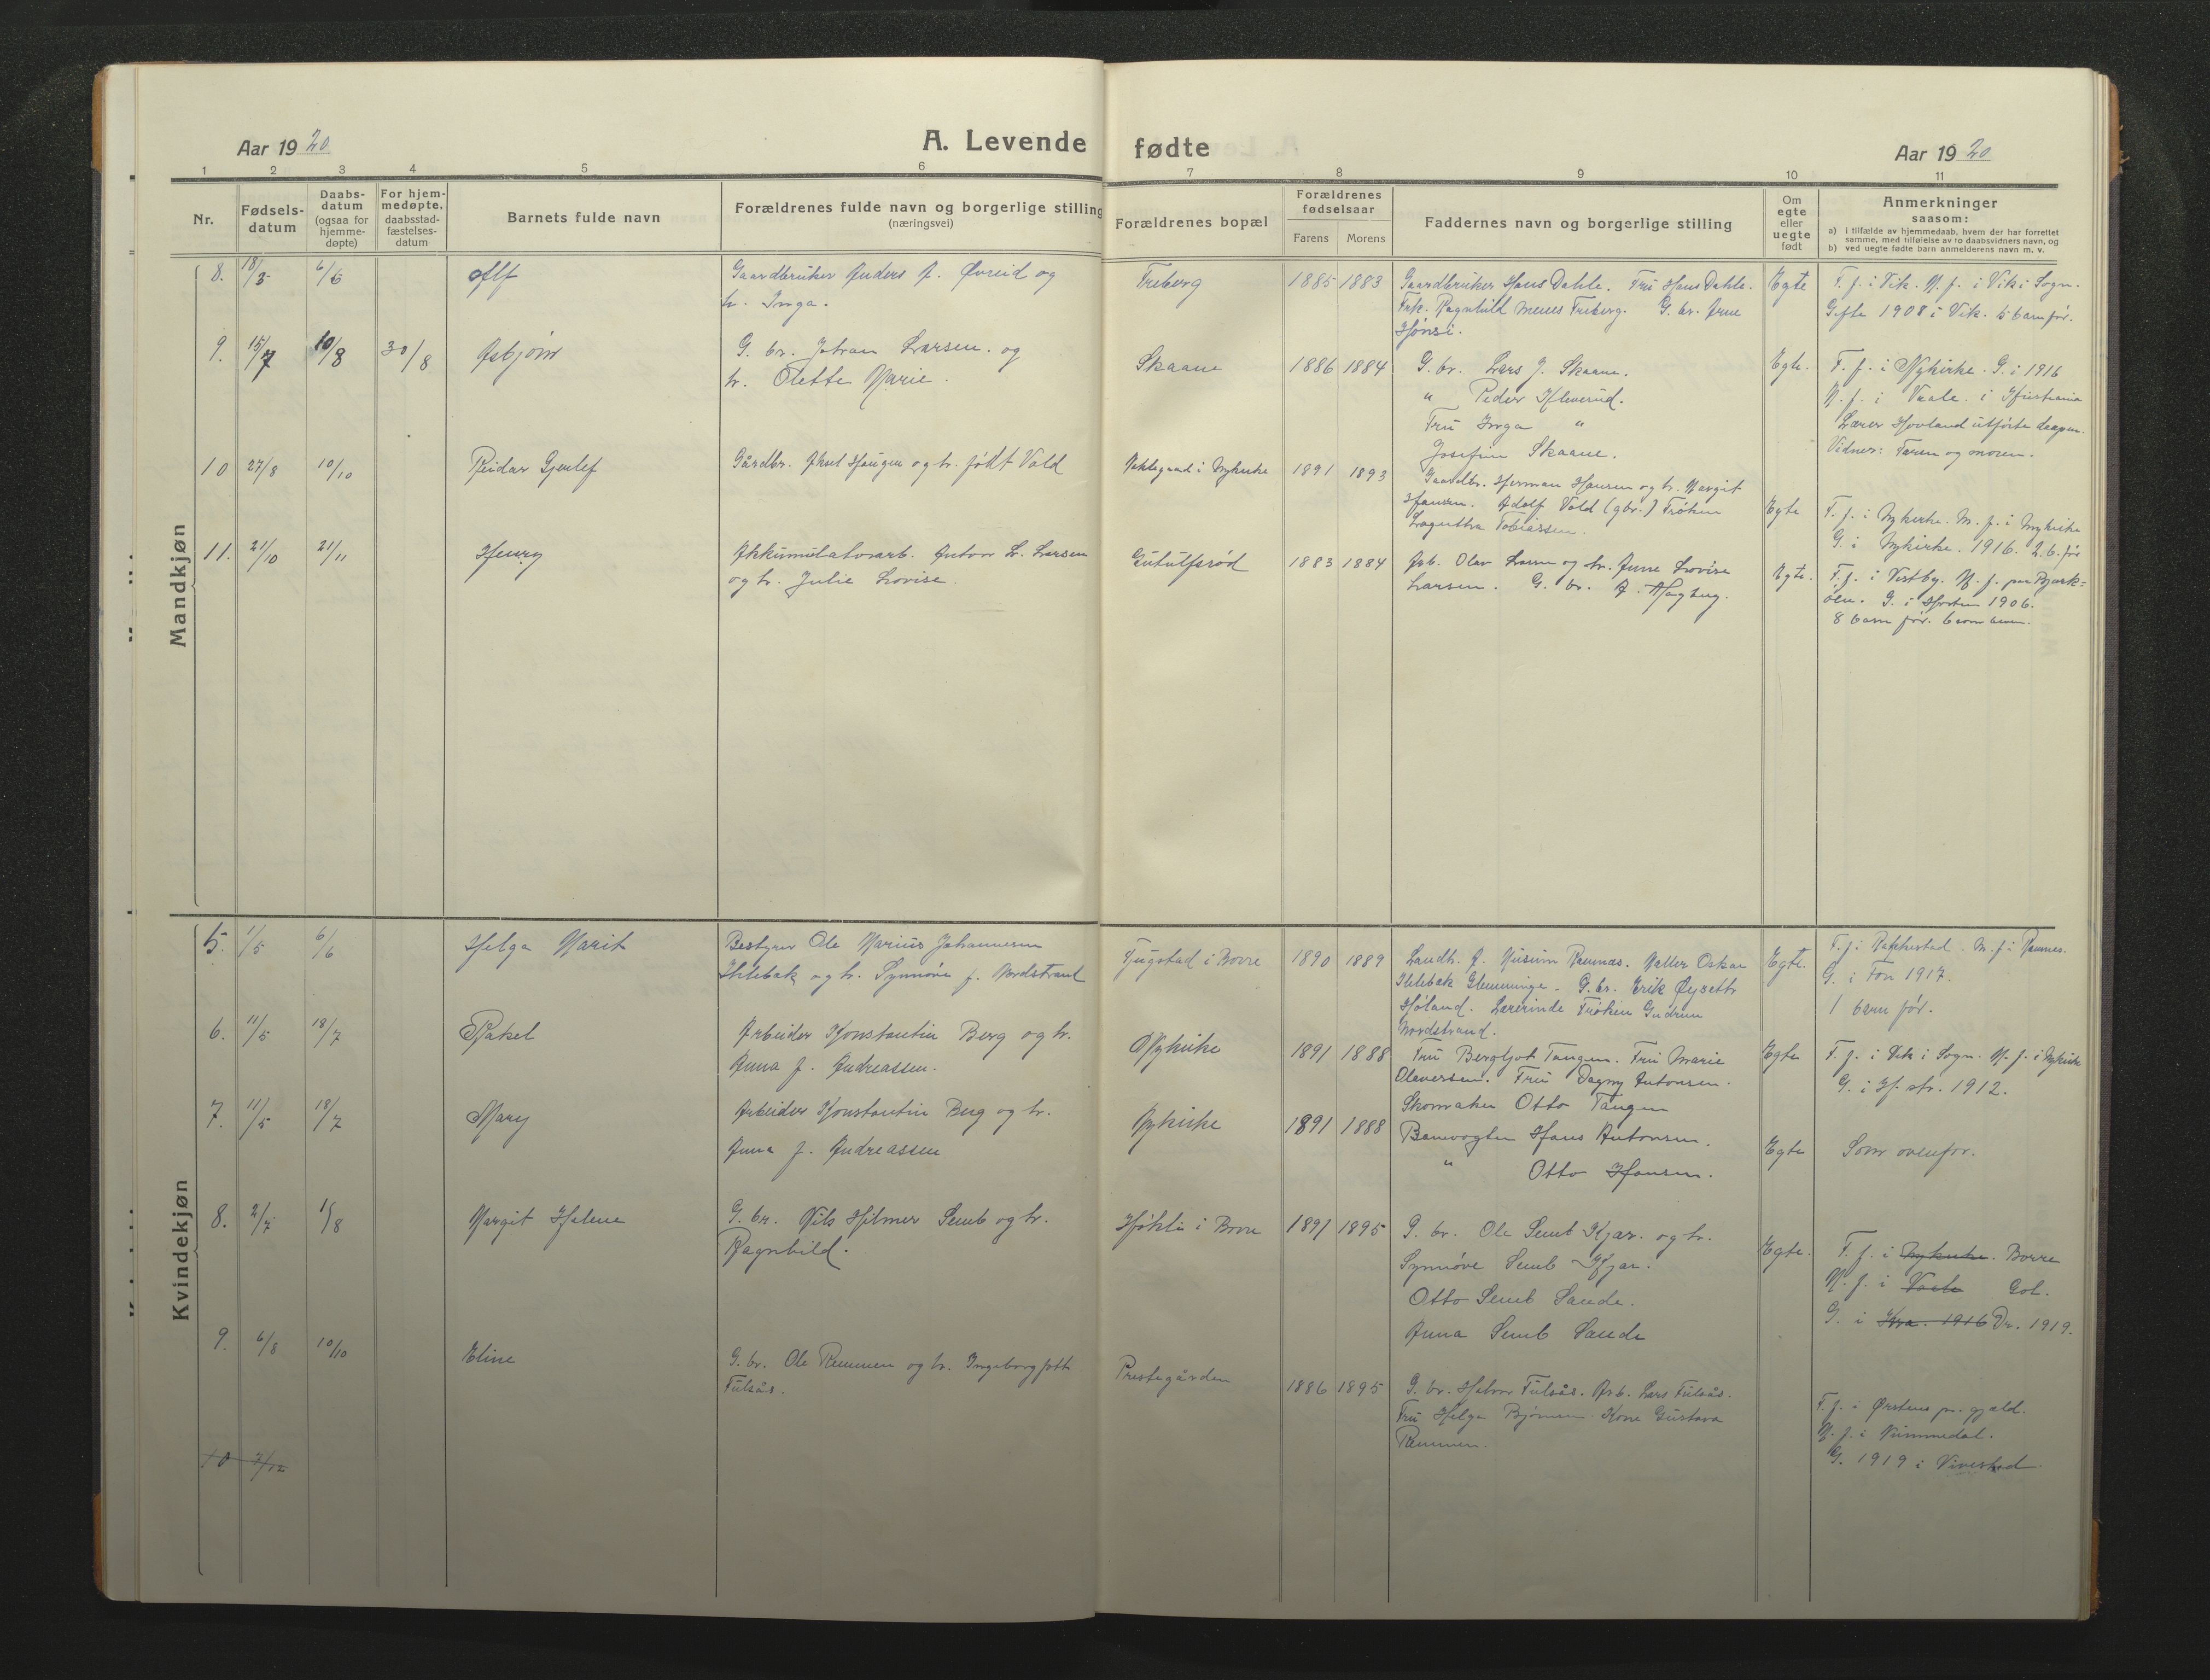 Aar 1920
A. Levende fødte
Aar 1920
1 2 3 4 5 6 7 8 9 10 11
Nr.
Fødsels-
datum
Daabs-
datum
(ogsaa for
hjemme-
døpte)
For hjem-
medøpte,
daabsstad-
fæstelses-
datum
Barnets fulde navn
Forældrenes fulde navn og borgerlige stilling
(næringsvei)
Forældrenes bopæl
Forældrenes
fødselsaar
Farens Morens
Faddernes navn og borgerlige stilling
Om
egte
eller
uegte
født
Anmerkninger
saasom:
a) i tilfælde av hjemmedaab, hvem der har forrettet
samme, med tilføielse av to daabsvidners navn, og
b) ved uegte fødte barn anmelderens navn m. v.
Mandkjøn
8. 18/3 6/6 Alf
Gaardbruker Anders A. Øvreid og
h. Inga.
Freberg 1885 1883
Gaardbruker Hans Dahle. Fru Hans Dahle.
Frk. Ragnhild Menes Freberg. G. br. Arne
Hønsi.
Egte
F. f. i Vik. M. f. i Vik i Sogn.
Gifte 1908 i Vik. 5 barn før.
9. 15/7 10/8 30/8 Asbjørn
G. br. Johan Larsen. og
h. Olette Marie.
Skaane 1886 1884
G. br. Lars J. Skaane.
" Peder Kleverud.
Fru Inga "
Josefine Skaane.
Egte.
F. f. i Nykirke. G. i 1916
M. f. i Vaale. i Kristiania
Lærer Hovland utførte daapen.
Vidner: Faren og moren.
10 27/8 10/10 Reidar Gjenlef
Gårdbr. Akut Haugen og h. født Vold
i Nykirke 1891 1893
Gaardbr. Herman Hansen og h. Margit
Hansen. Adolf Vold (gbr.) Frøken
Tobiassen.
Egte
F. f. i Nykirke. M. f. i Nykirke
G. i Nykirke. 1916. 2. b. før
11. 21/10 21/11 Henry
Akkumulatorarb. Anton L. Larsen
og h. Julie Lovise.
Gutulfsrød 1883 1884
Arb. Olav Larsen og h. Anne Lovise
Larsen. G. br. A. Høgberg.
Egte.
F. f. i Vestby. M. f. paa Bjerk=
øen. G. i Horten 1906.
8 barn før.
Kvindekjøn
5. 1/5 6/6 Helga Marit
Bestyrer Ole Marius Johannesen
Iklebak og h. Synnøve f. Nordstrand
Fugstad i Borre 1890 1889
Landh. A. Musum Raumnes. Møller Oskar
Iklebak Glemminge. G. br. Erik Øysett
Høland. Lærerinde Frøken Gudrun
Nordstrand.
Egte.
F. f. i Rakkestad. M. f. i Raumnes.
G. i Fon 1917.
1 barn før.
6. 11/5 18/7 Rakel
Arbeider Konstantin Berg og h.
Anna f. Andreassen.
Nykirke 1891 1888
Fru Bergljot Tangen. Fru Marie
Olaversen. Fru Dagny Antonsen.
Skomaker Otto Tangen
Egte
F. f. i Vik i Sogn. M. f. i Nykirke
G. i H. str. 1912.
7. 11/5 18/7 Mary
Arbeider Konstantin Berg og h.
Anna f. Andreassen
Nykirke 1891 1888
Banevogter Hans Antonsen.
" Otto Hansen.
Egte
Som ovenfor.
8. 2/7 1/8 Margit Helene
G. br. Nils Hilmer Semb og h.
Ragnhild.
Høkli i Borre 1891 1895
G. br. Ole Semb Kjær. og h.
Synnøve Semb Kjær.
Otto Semb Sande.
Anna Semb Sande
Egte.
F. f. i Nykirke. Borre
M. f. i Vaale Gol.
G. i Kra. 1916 Dr. 1919.
9. 6/8 10/10 Eline
G. br. Ole Remmen og h. Ingeborg født
Fulsås.
Prestegården 1886 1895
G. br. Halvor Fulsås. Arb. Lars Fulsås.
Fru Helga Bjørnsen. Kone Gustava
Remmen.
F. f. i Ørstens pr. gjæld.
M. f. i Nummedal.
G. 1919 i Vivestad.
10 7/12